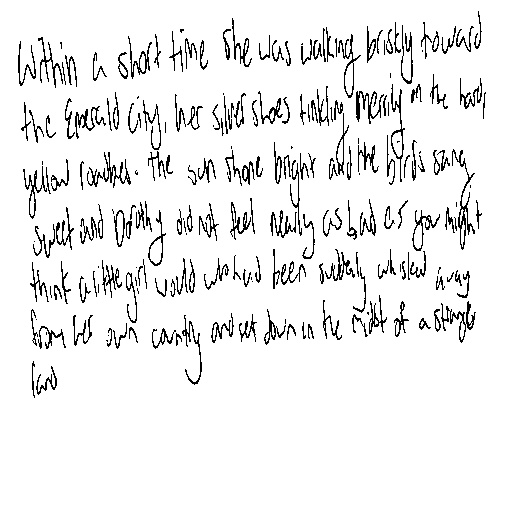 Within a short time she was walking briskly toward
the Emerald City, her silver shoes tinkling merrily on the hard,
yellow roadbed. The sun shone bright and the birds sang
sweet and Dorothy did not feel nearly as bad as you might
think a little girl would who had been suddenly whisked away
from her own country and set down in the midst of a strange
land